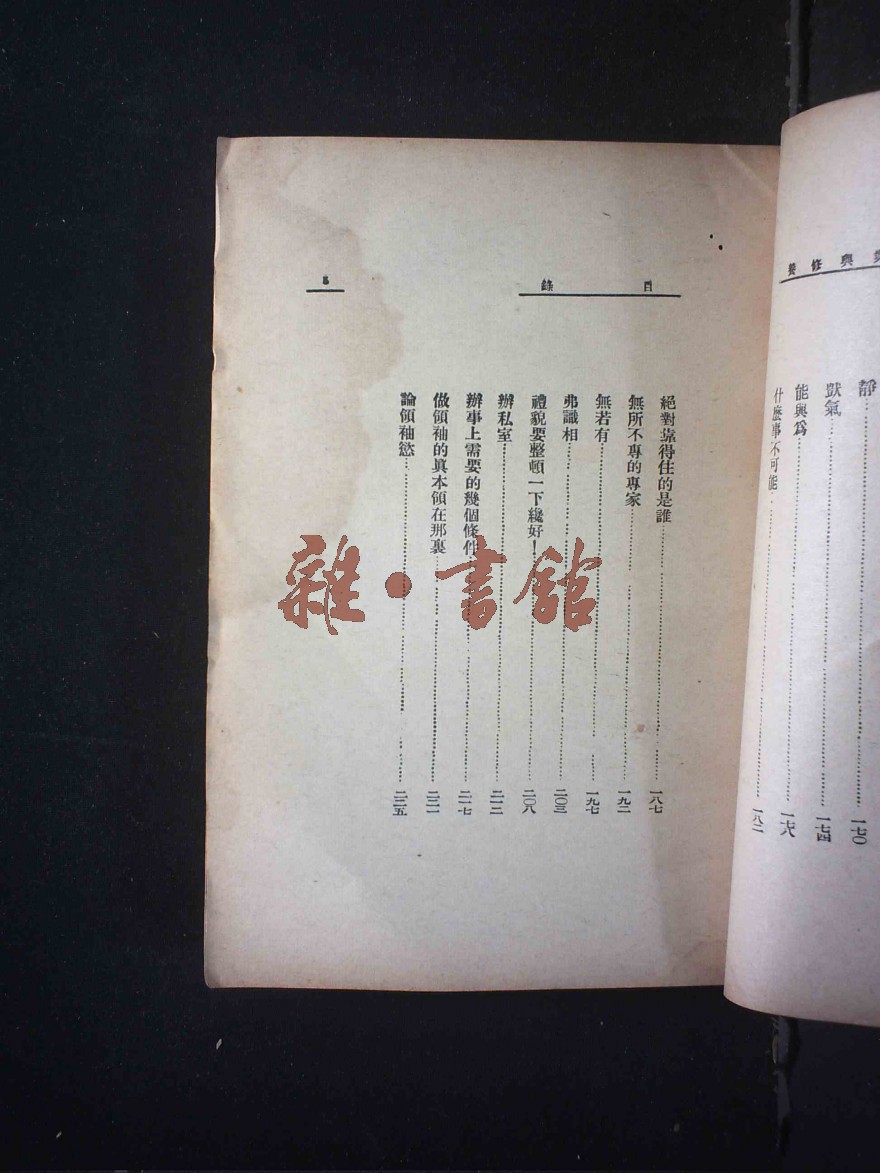 修與
靜……一七〇
獃氣……一七四
能與爲……一七八
什麼事不可能……一八二
目錄
5
絕對靠得住的是誰……一八七
無所不專的專家……一九二
無若有……一九七
弗識相……二〇三
禮貌要整頓一下纔好！……二〇八
辦私室……二一三
辦事上需要的幾個條件……二一七
做領袖的眞本領在那裏……二二一
論領袖慾……二二五
雜·書館